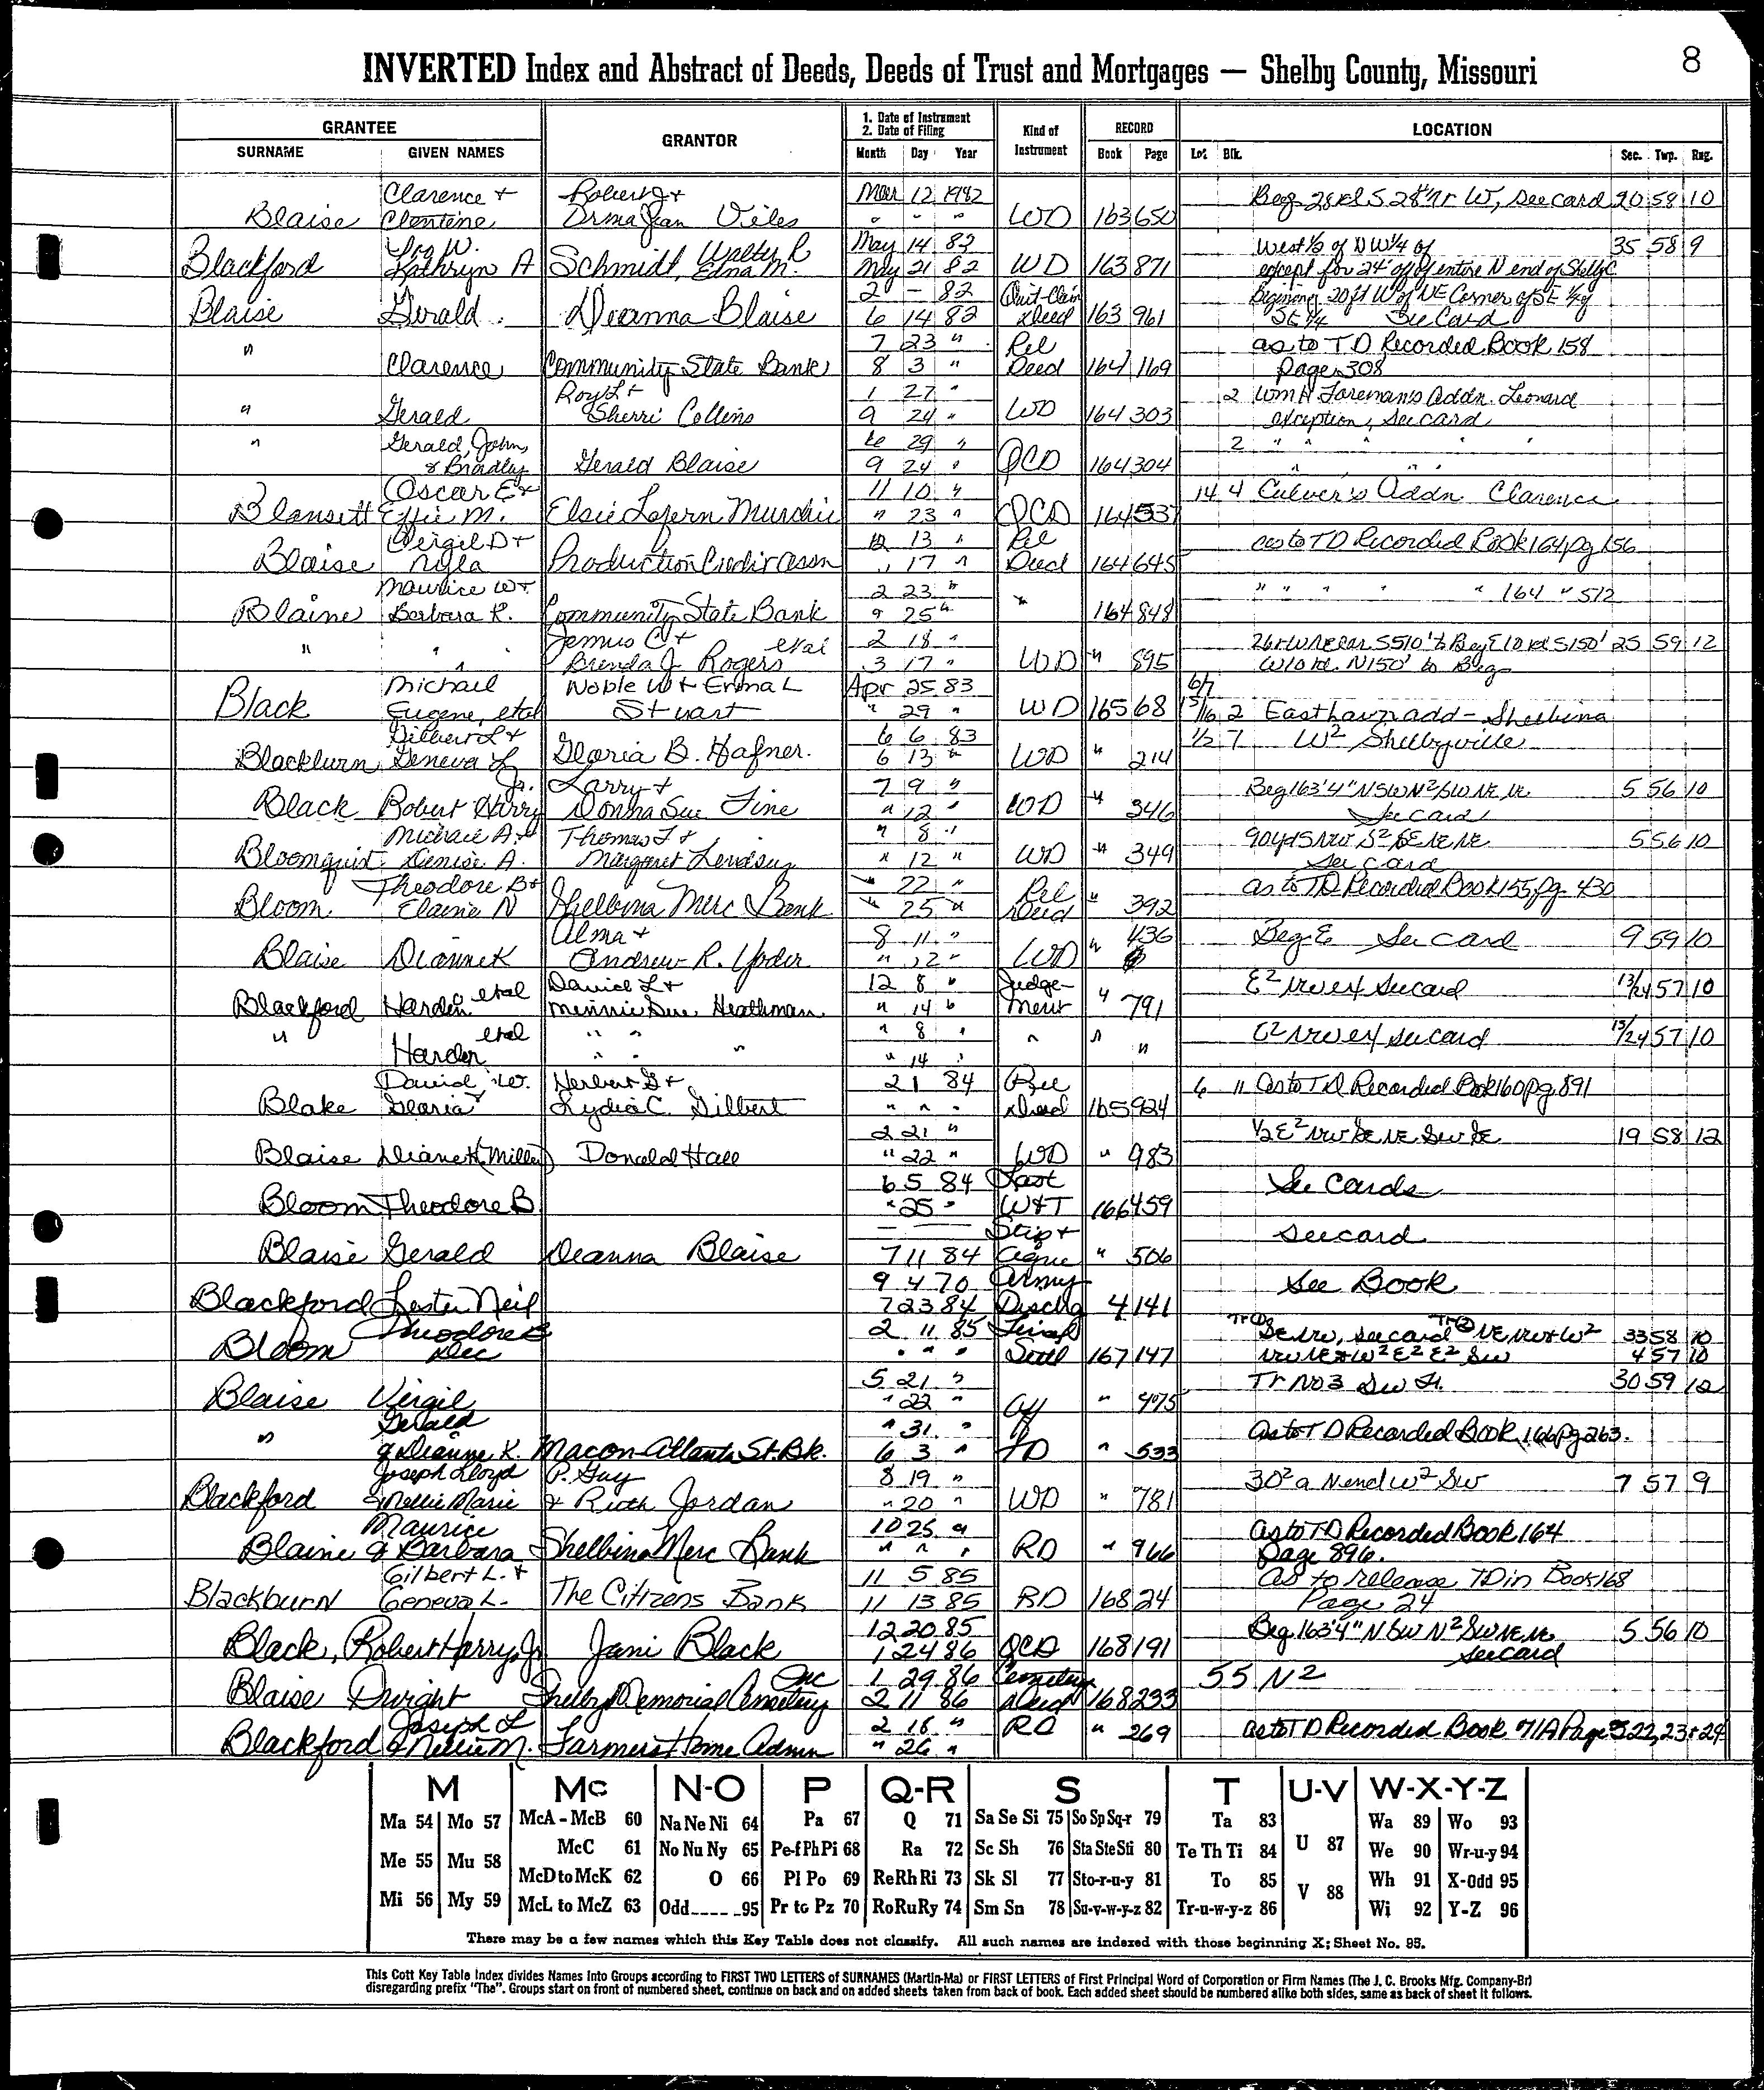 8
INVERTED Index and Abstract of Deeds, Deeds of Trust and Mortgages — Shelby County, Missouri
GRANTEE GRANTOR 1. Date of Instrument 2. Date of Filing Kind of Instrument RECORD LOCATION
SURNAME GIVEN NAMES Month Day Year Book Page Lot Blk. Sec. Twp. Rng.
Clarence + Robert J + Mar 12 1982 Beg 28 rd S 28 W, see card 20 58 10
Blaise Clentine Orma Jean Viles " " " WD 163 650
W. Walter R May 14 82 West ½ of NW¼ of 35 58 9
Blackford Kathryn A Schmidt, Edna M. May 21 82 WD 163 871 except for 24' off of entire N end of
2 - 82 Quit-Claim Beginning 20 ft W of NE Corner of SE ¼ of
Blaise Gerald Deanna Blaise 6 14 82 Deed 163 961 SE ¼ See Card
" 7 23 " Rel as to T D Recorded Book 158
Clarence Community State Bank 8 3 " Deed 164 169 Page 308
Roy L + 1 27 " 2 Wm H Foreman's Addn. Leonard
" Gerald Sherri Collins 9 24 " WD 164 303 exception, see card
" Gerald, John, 6 29 " 2 " " " " "
& Bradley Gerald Blaise 9 24 " QCD 164 304 " " "
Oscar E + 11 10 " 14 4 Culver's Addn Clarence
Blansett Effie M. Elsie Lafern Murchie " 23 " QCD 164 537
Virgil D + 12 13 " Rel as to TD Recorded Book 164 pg 156
Blaise Nyla Production Credit Assn " 17 " Deed 164 645
Maurice W + 2 23 " " " " " " 164 " 512
Blaine Barbara K. Community State Bank " 25 " " 164 848
James C + etal 2 18 " S510' to Beg E 10 rd S150' 25 59 12
" " Brenda J. Rogers 3 17 " WD " 895 W10 rd. N150' to Beg
Michael Noble W + Erma L Apr 25 83 6/7
Black Eugene, etal Stuart " 29 " WD 165 68 15/16 2 Easthaven add - Shelbina
Gilbert L + 6 6 83 1/2 7 W² Shelbyville
Blackburn Geneva L Gloria B. Hafner. 6 13 " WD " 214
Jr. Larry + 7 9 " Beg 163'4" N SW N² SW NE NE 5 56 10
Black Robert Harry Donna Sue Fine " 12 " WD " 346 See Card
Michael A. + Thomas L + " 8 " 90 yds NW S² SE NE NE 5 56 10
Bloomquist Denise A. Margaret Lendsay " 12 " WD " 349 See Card
Theodore B + " 22 " Rel as to TD Recorded Book 155 pg. 430
Bloom Elaine N Shelbina Merc Bank " 25 " Deed " 392
Alma + 8 11 " 436 Beg E See card 9 59 10
Blaise Dianne K Andrew R. Yoder " 12 " WD "
etal Daniel L + 12 8 " Judge- E² NW ex see card 13/24 57 10
Blackford Harden Minnie Sue Heathman " 14 " ment " 791
" etal " " " 8 " " " E² NW ex see card 13/24 57 10
Harden " " " " 14 " "
David W. Herbert G + 2 1 84 Rel 6 11 as to T D Recorded Book 160 pg 891
Blake Gloria + Lydia C. Gilbert " " " Deed 165 924
2 21 " ½ E² NW SE NE SW SE 19 58 12
Blaise Diane K (Miller) Donald Hall " 22 " WD " 983
6 5 84 Last See Cards
Bloom Theodore B " 25 " W&T 166 459
— — Stip + See card
Blaise Gerald Deanna Blaise 7 11 84 Agree " 506
9 4 70 Army See Book
Blackford Lester Neil 7 23 84 Dischg 4 141
Theodore B 2 11 85 Final Tr① SE NW, see card Tr② NE NW & W² 33 58 10
Bloom Dec " " " Settl 167 147 NW NE & W² E² E² SW 4 57 10
5 21 " Tr No 3 SW fr. 30 59 12
Blaise Virgil " 22 " Aff " 475
" Gerald " 31 " As to T D Recorded Book 166 pg 263.
& Dianne K. Macon-Atlanta St. Bk. 6 3 " TD " 533
Joseph Lloyd P. Guy 8 19 " 30² a N end W² SW 7 57 9
Blackford & Nellie Marie & Ruth Jordan " 20 " WD " 781
Maurice 10 25 " As to T D Recorded Book 164
Blaine & Barbara Shelbina Merc Bank " " " RD " 966 Page 896.
Gilbert L. + 11 5 85 as to release TD in Book 168
Blackburn Geneva L. The Citizens Bank 11 13 85 RD 168 24 Page 24
12 20 85 Beg 163'4" N SW N² SW NE NE 5 56 10
Black, Robert Harry, Jr Jani Black 1 24 86 QCD 168 191 See card
Inc 1 29 86 Cemetery 55 N²
Blaise Dwight Shelby Memorial Cemetery 2 11 86 Deed 168 233
Joseph L 2 18 " RD " 269 as to T D Recorded Book 71A Pages 22, 23 & 24
Blackford & Nellie M. Farmers Home Admn " 26 "
M Mc N-O P Q-R S T U-V W-X-Y-Z
Ma 54 Mo 57 McA - McB 60 Na Ne Ni 64 Pa 67 Q 71 Sa Se Si 75 So Sp Sq-r 79 Ta 83 Wa 89 Wo 93
McC 61 No Nu Ny 65 Pe-f Ph Pi 68 Ra 72 Sc Sh 76 Sta Ste Sti 80 Te Th Ti 84 U 87 We 90 Wr-u-y 94
Me 55 Mu 58 McD to McK 62 O 66 Pl Po 69 Re Rh Ri 73 Sk Sl 77 Sto-r-u-y 81 To 85 V 88 Wh 91 X-Odd 95
Mi 56 My 59 McL to McZ 63 Odd_ _ _ _ _95 Pr to Pz 70 Ro Ru Ry 74 Sm Sn 78 Su-v-w-y-z 82 Tr-u-w-y-z 86 Wi 92 Y-Z 96
There may be a few names which this Key Table does not classify. All such names are indexed with those beginning X; Sheet No. 95.
This Cott Key Table Index divides Names Into Groups according to FIRST TWO LETTERS of SURNAMES (Martin-Ma) or FIRST LETTERS of First Principal Word of Corporation or Firm Names (The J. C. Brooks Mfg. Company-Br)
disregarding prefix "The". Groups start on front of numbered sheet, continue on back and on added sheets taken from back of book. Each added sheet should be numbered alike both sides, same as back of sheet it follows.